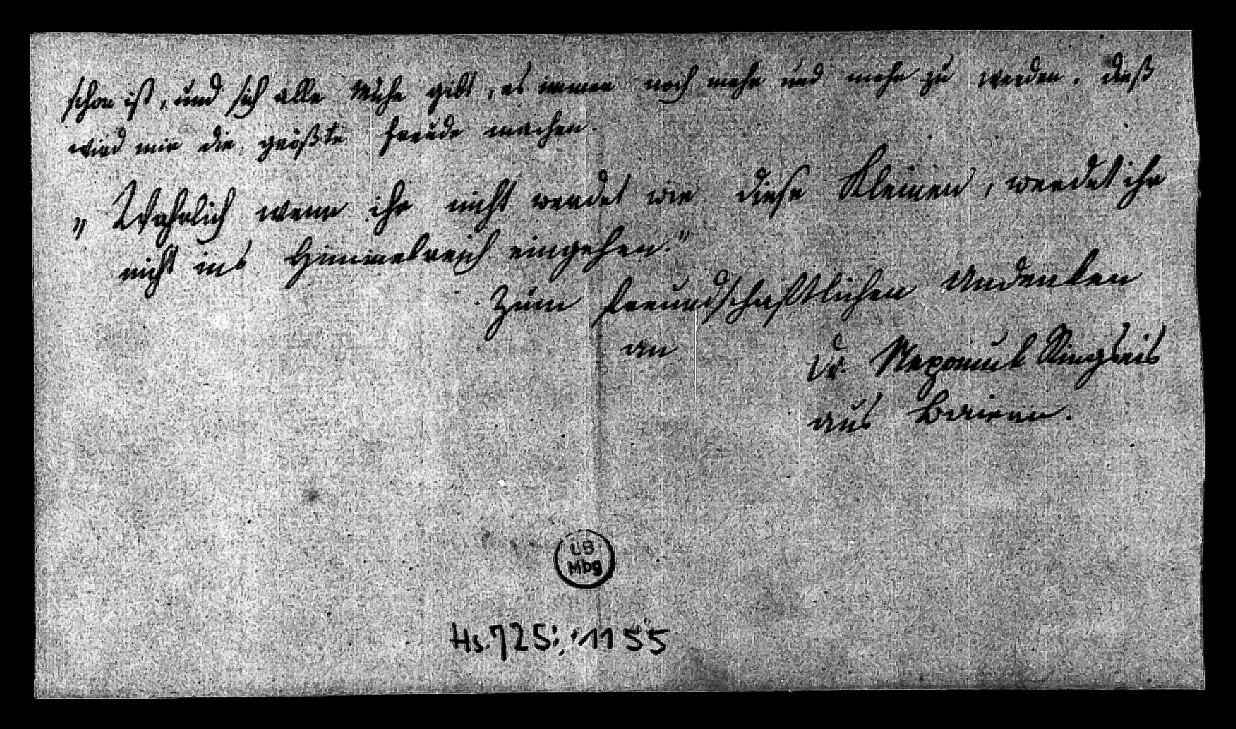 schon ist, und sich alle Mühe gibt, es immer noch mehr und mehr zu werden. dieß
wird mir die größte Freude machen.
„Wahrlich wenn ihr nicht werdet wie diese Kleinen, werdet ihr
nicht ins Himmelreich eingehen."
Zum freundschaftlichen Andenken
an
Dr. Nepomuk Ringseis
aus Baiern.
UB
Mbg
Hs. 725: 1155